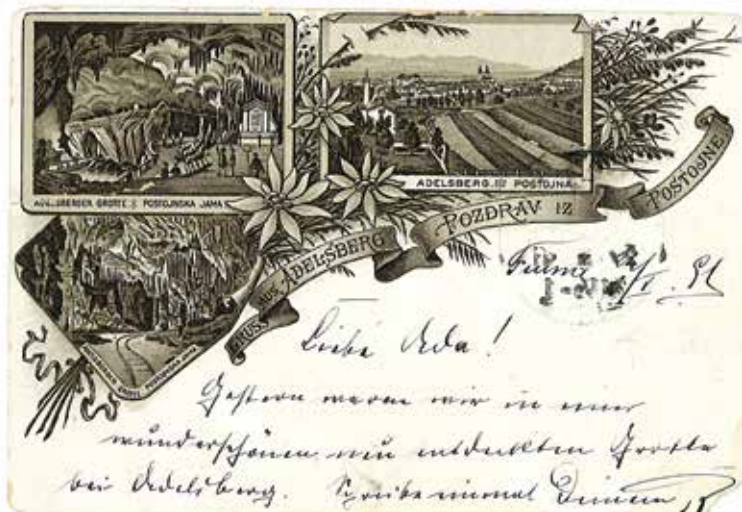 ADELSBERGER GROTTE POSTOJNSKA JAMA
ADELSBERG. POSTOJNA.
GRUSS AUS ADELSBERG POZDRAV IZ POSTOJNE
ADELSBERGER GROTTE POSTOJNSKA JAMA
Fiume
Liebe Ada!
Gestern waren wir in einer
wunderschönen neu entdeckten Grotte
bei Adelsberg. Schreibe einmal